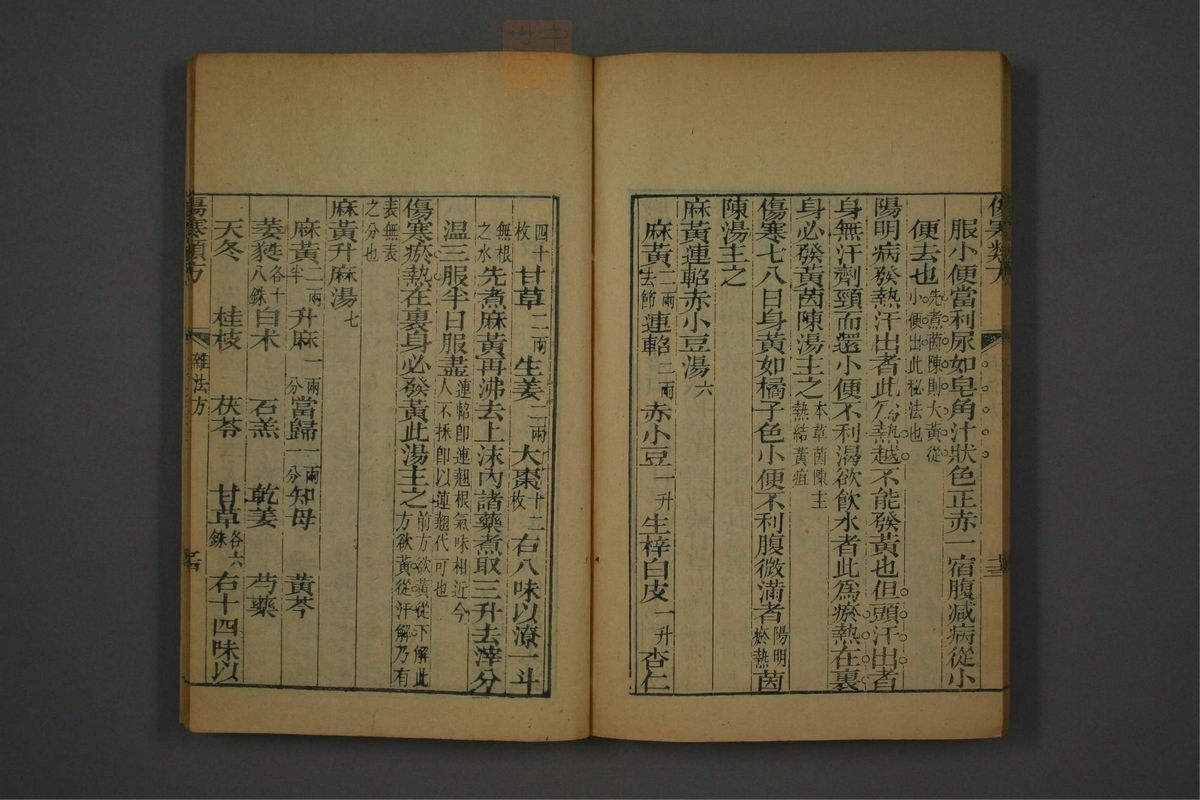 傷寒類方
服小便當利尿如皂角汁狀色正赤一宿腹減病從小
便去也先煮茵陳則大黃從小便出此秘法也
陽明病發熱汗出者此為熱越不能發黃也但頭汗出者
身無汗劑頸而還小便不利渴欲飲水者此爲瘀熱在裏
身必發黃茵陳湯主之本草茵陳主熱結黃疸
傷寒七八日身黃如橘子色小便不利腹微滿者陽明瘀熱茵
陳湯主之
麻黃連軺赤小豆湯六
麻黃二兩去節連軺二兩赤小豆一升生梓白皮一升杏仁
四十枚甘草二兩生姜二兩大棗十二枚右八味以潦一斗
無根之水先煮麻黃再沸去上沫內諸藥煮取三升去滓分
温三服半日服盡連軺卽連翹根氣味相近今人不採卽以連翹代可也
傷寒瘀熱在裏身必發黃此湯主之前方欲黃從下解此方欲黃從汗解乃有
表無表之分也
麻黃升麻湯七
麻黃二兩半升麻一兩一分當歸一兩一分知母 黃芩
萎蕤各十八銖白术 石羔 乾姜 芍藥
天冬 桂枝 茯苓 甘草各六銖右十四味以
傷寒類方 雜法方